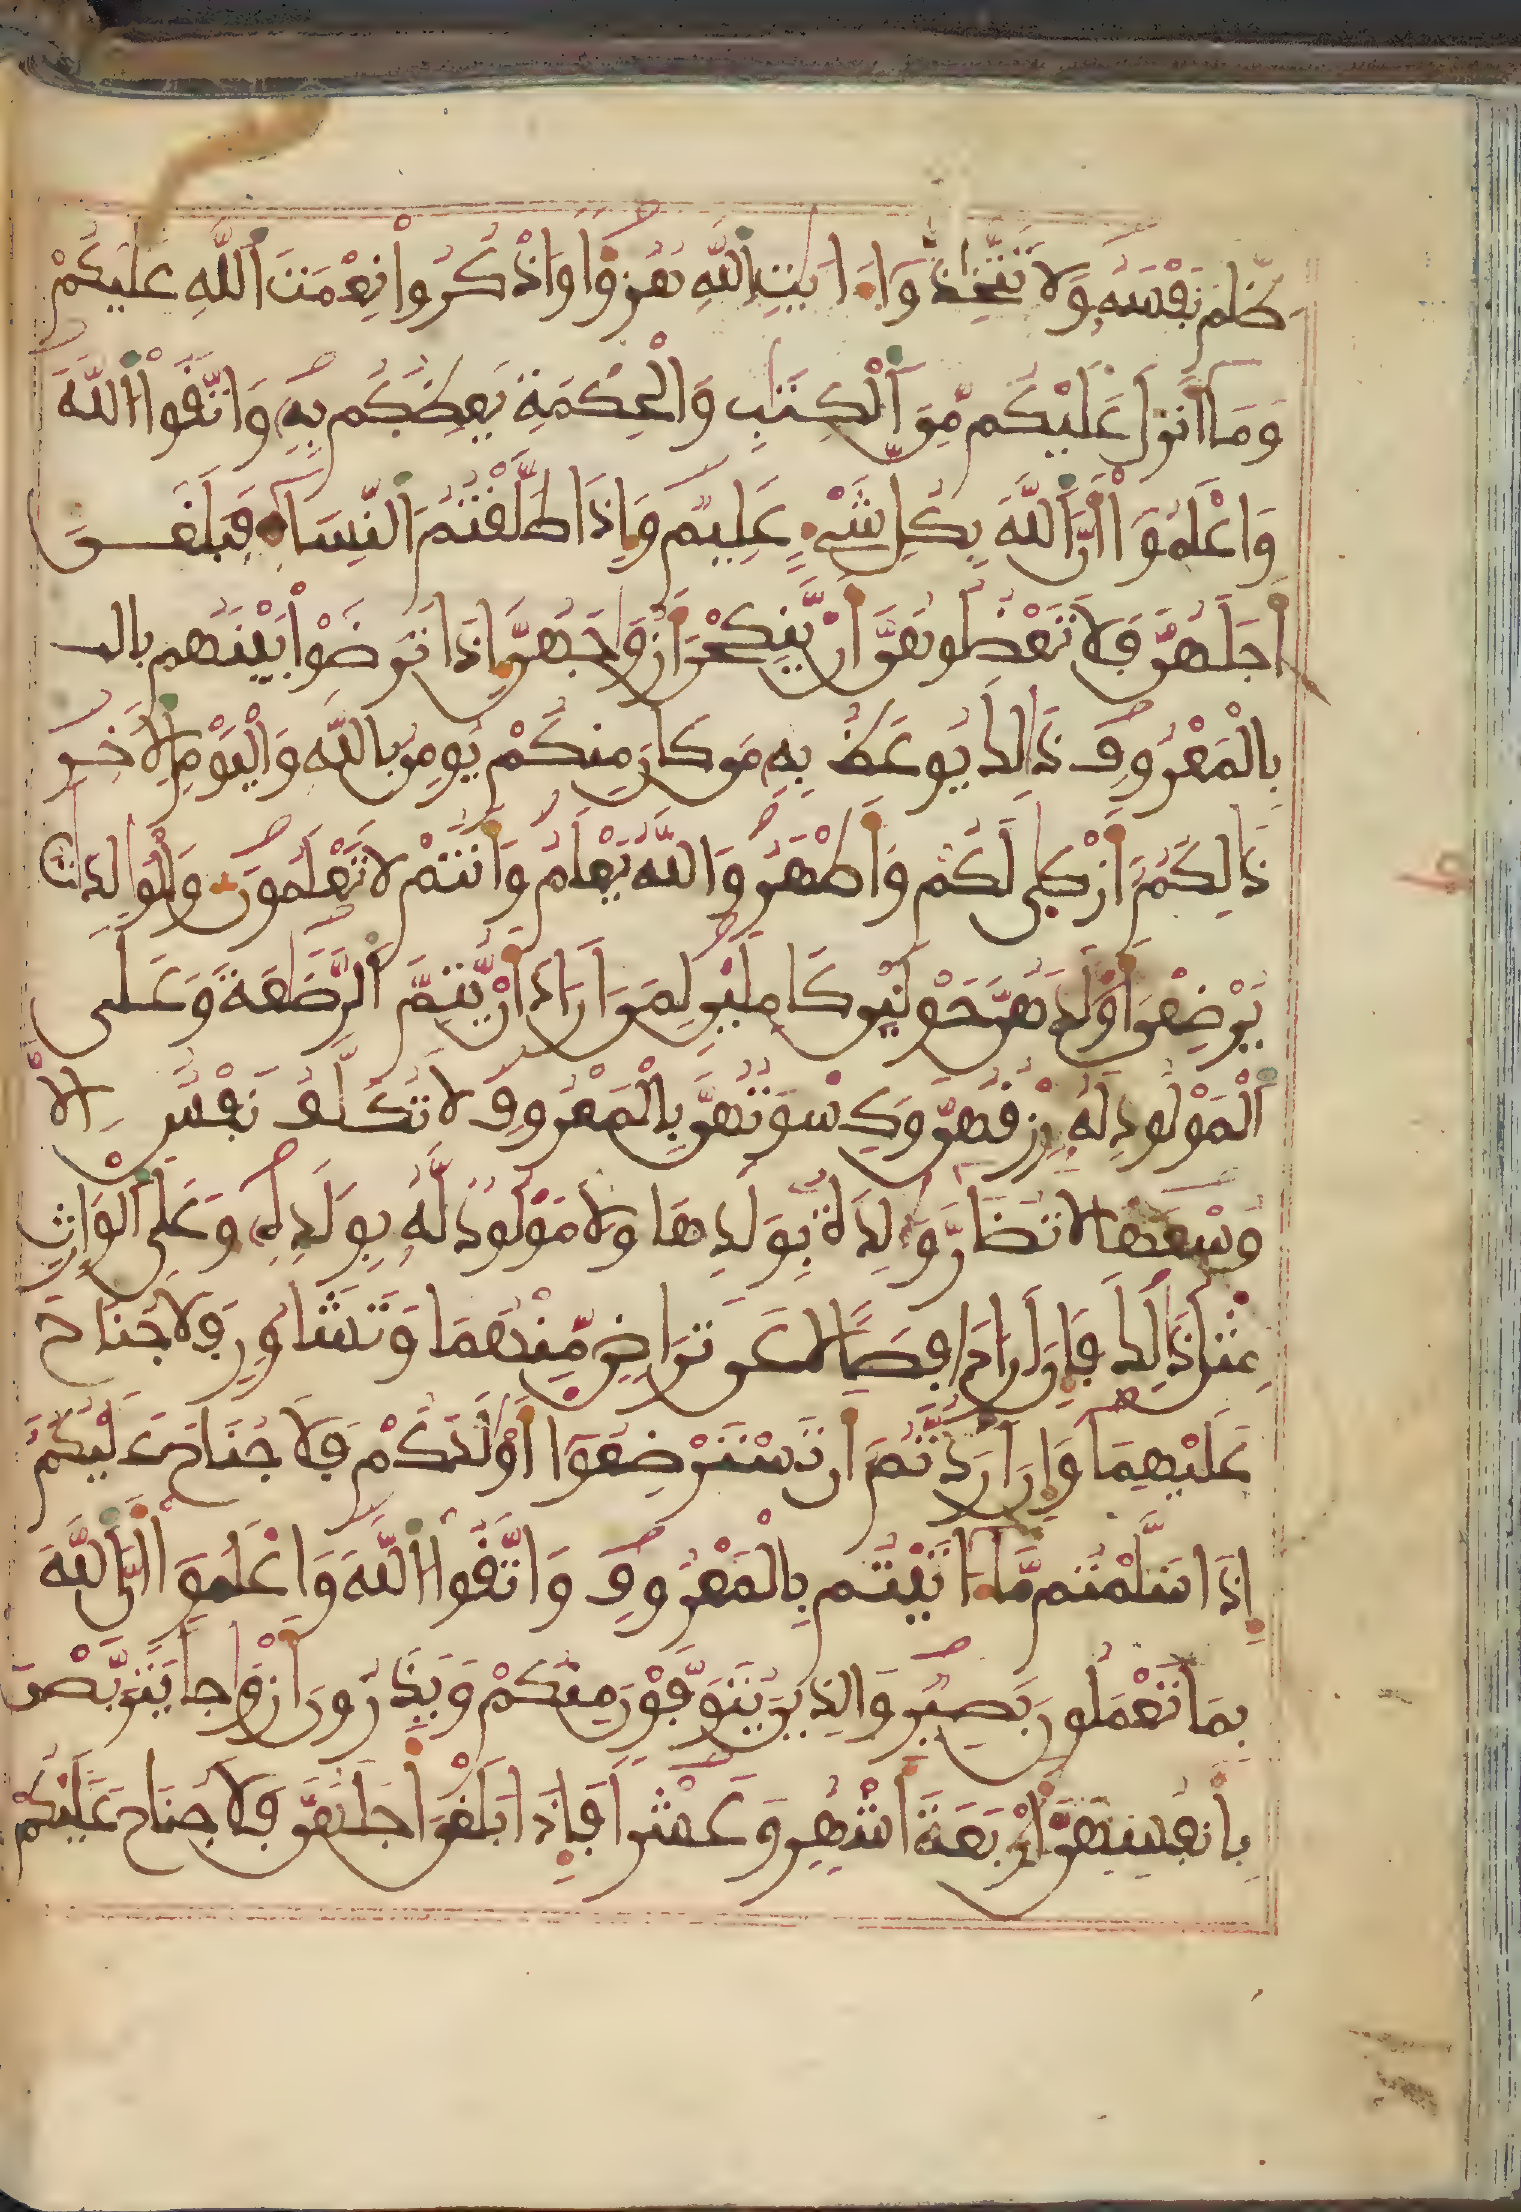 ظَلَمَ نَفْسَهُ وَلَا تَتَّخِذُوٓا ءَايَٰتِ اِ۬للَّهِ هُزُؤاً وَاذْكُرُوا نِعْمَتَ اَ۬للَّهِ عَلَيْكُمْ
وَمَآ أَنزَلَ عَلَيْكُم مِّنَ اَ۬لْكِتَٰبِ وَالْحِكْمَةِ يَعِظُكُم بِهِ وَاتَّقُوا اُ۬للَّهَ
وَاعْلَمُوٓا أَنَّ اَ۬للَّهَ بِكُلِّ شَےْءٍ عَلِيمٌ وَإِذَا طَلَّقْتُمُ اُ۬لنِّسَآءَ فَبَلَغْنَ
أَجَلَهُنَّ فَلَا تَعْضُلُوهُنَّ أَنْ يَّنكِحْنَ أَزْوَٰجَهُنَّ إِذَا تَرَٰضَوْا بَيْنَهُم بالمـ
بِالْمَعْرُوفِ ذَٰلِكَ يُوعَظُ بِهِ مَن كَانَ مِنكُمْ يُومِنُ بِاللَّهِ وَالْيَوْمِ اِ۬لَاخِرِ
ذَٰلِكُمُۥٓ أَزْكَىٰ لَكُمْ وَأَطْهَرُ وَاللَّهُ يَعْلَمُ وَأَنتُمْ لَا تَعْلَمُونَ وَالْوَٰلِدَٰتُ
يُرْضِعْنَ أَوْلَٰدَهُنَّ حَوْلَيْنِ كَامِلَيْنِ لِمَنَ اَرَادَ أَنْ يُّتِمَّ اَ۬لرَّضَٰعَةَ وَعَلَى
اَ۬لْمَوْلُودِ لَهُ رِزْقُهُنَّ وَكِسْوَتُهُنَّ بِالْمَعْرُوفِ لَا تُكَلَّفُ نَفْسٌ اِلَّا
وُسْعَهَا لَا تُضَآرَّ وَٰلِدَةٌ بِوَلَدِهَا وَلَا مَوْلُودٌ لَّهُ بِوَلَدِهِ وَعَلَى اَ۬لْوَارِثِ
مِثْلُ ذَٰلِكَ فَإِنَ اَرَادَا فِصَالاً عَن تَرَاضٍ مِّنْهُمَا وَتَشَاوُرٍ فَلَا جُنَاحَ
عَلَيْهِمَا وَإِنَ اَرَدتُّمُۥٓ أَن تَسْتَرْضِعُوٓا أَوْلَٰدَكُمْ فَلَا جُنَاحَ عَلَيْكُمُۥٓ
إِذَا سَلَّمْتُم مَّآ ءَاتَيْتُم بِالْمَعْرُوفِ وَاتَّقُوا اُ۬للَّهَ وَاعْلَمُوٓا أَنَّ اَ۬للَّهَ
بِمَا تَعْمَلُونَ بَصِيرٌ وَالَّذِينَ يُتَوَفَّوْنَ مِنكُمْ وَيَذَرُونَ أَزْوَٰجاً يَتَرَبَّصْنَ
بِأَنفُسِهِنَّ أَرْبَعَةَ أَشْهُرٍ وَعَشْراً فَإِذَا بَلَغْنَ أَجَلَهُنَّ فَلَا جُنَاحَ عَلَيْكُمْ